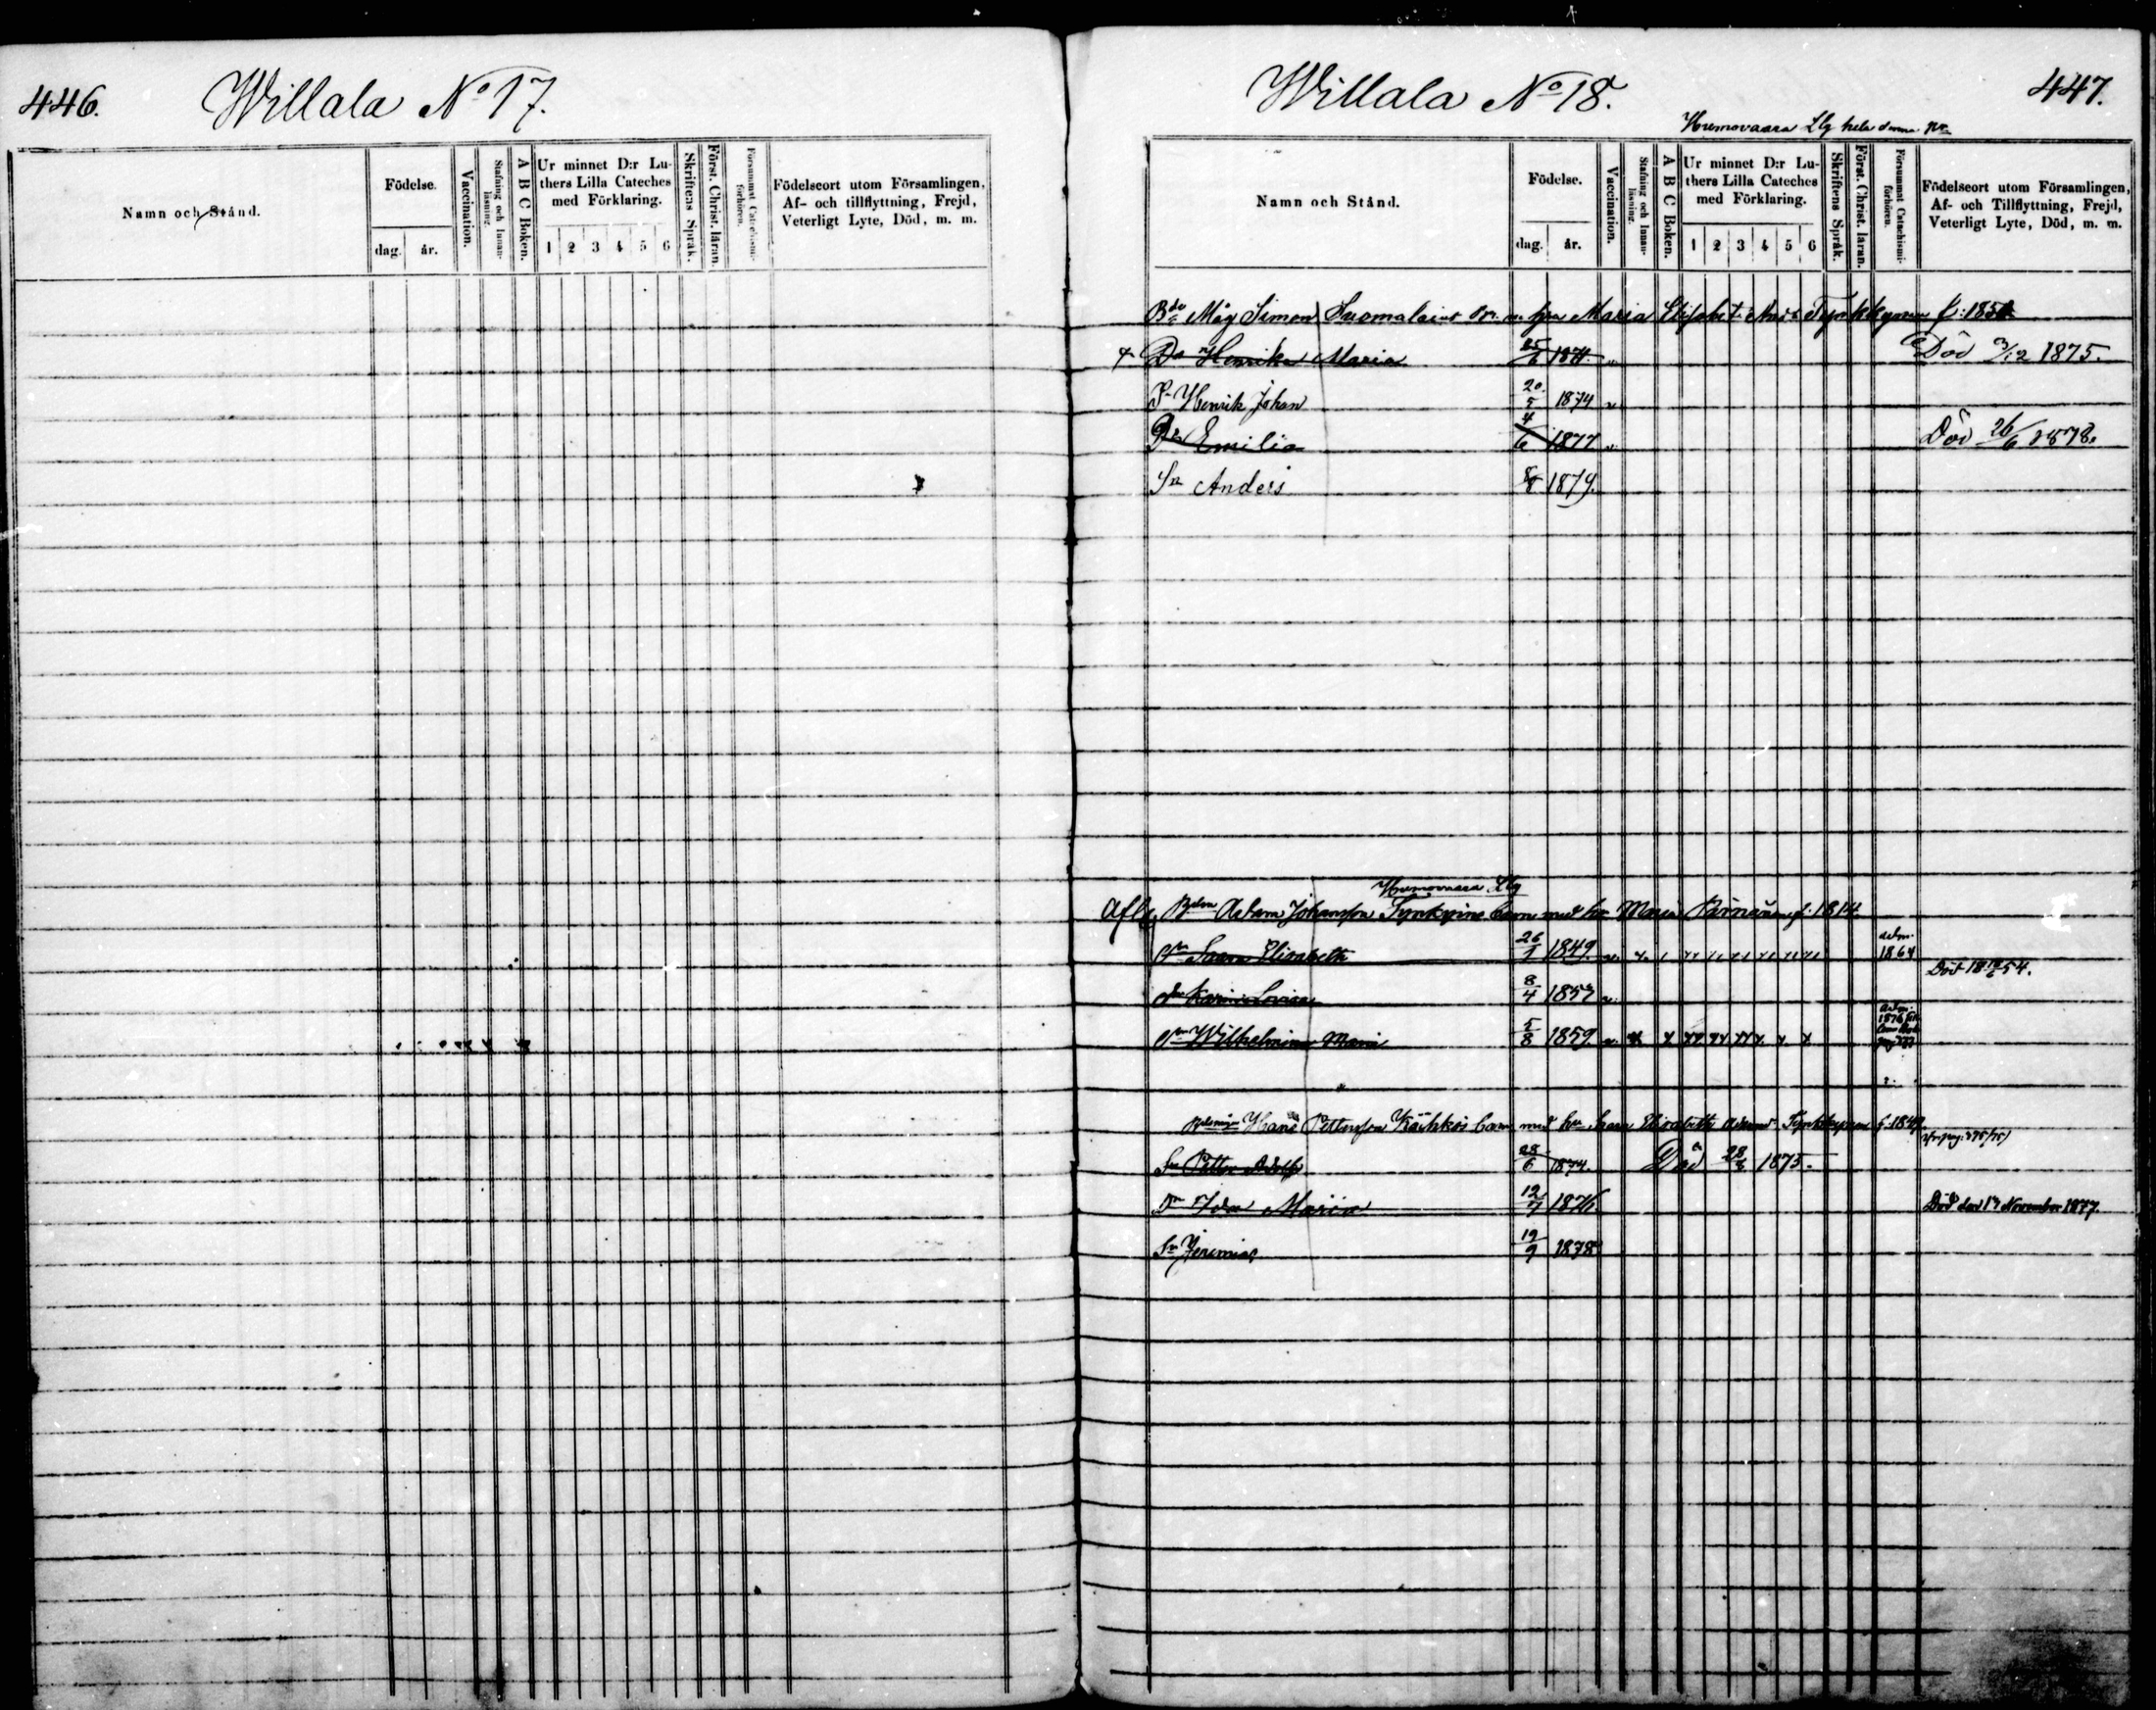 446.
Willala No 17.
Namn och Stånd.
Födelse.
dag. år.
Vaccination.
Stafning och Innanläsning.
A B C Boken.
Ur minnet D:r Luthers Lilla Cateches med Förklaring.
1 2 3 4 5 6
Skriftens Språk.
Först. Christ. läran.
Försummat Catechismiförhören.
Födelseort utom Församlingen, Af- och tillflyttning, Frejd, Veterligt Lyte, Död, m. m.
Willala No 18.
447.
Huemovaara Llg hela denna No
Namn och Stånd.
Födelse.
dag. år.
Vaccination.
Stafning och Innanläsning.
A B C Boken.
Ur minnet D:r Luthers Lilla Cateches med Förklaring.
1 2 3 4 5 6
Skriftens Språk.
Först. Christ. läran.
Försummat Catechismiförhören.
Födelseort utom Församlingen, Af- och Tillflyttning, Frejd, Veterligt Lyte, Död, m. m.
Måg Simon Suomalains Maria Elisabet Tynkkynen f: 1850
Dr Henrika Maria 25/6 1871. Död 3/12 1875.
Sn Henrik Johan 20/5 1874
Dr Emilia 4/6 1877 Död 26/6 1878.
Sn Anders 8/8 1879.
Huemovaara Llg
Afl. Adam Johansson Tynkkynens barn med hu Maria Pirnänen f. 1814
Dr Saara Elisabeth 26/1 1849. adm. 1864
Död 18 54.
Dr Karin Lovisa 8/4 1857
Dr Wilhelmina Maria 5/8 1859 adm. 1876
Hans Pettersson Kähkös barn med hu Saara Elisabeth Adamsdr Tynkkynen f. 1849
Sn Petter Adolf 28/6 1874. Död 28/8 1875.
Dr Ida Maria 12/7 1876. Död den 17 November 1877.
Sn Jeremias 19/9 1878